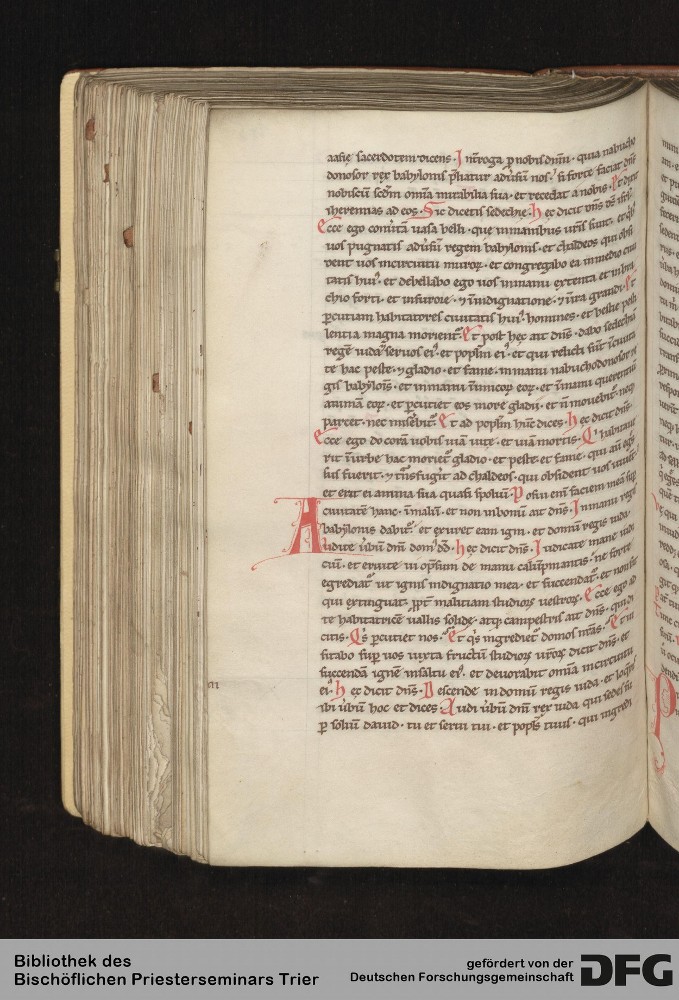 aasie sacerdotem dicens. Intͬroga ꝓ nobis dn̄m. quia nabucho
donosor rex babylonis p̄liatur adūsū nos. si forte faciat dn̄s
nobiscū scd̄m om̄ia mirabilia sua. et recedat a nobis. Et dixit
iheremias ad eos. Sic dicetis sedechie. Hec dicit dn̄s ds̄ isrl̄.
Ecce ego conūtā uasa belli. que in manibus ūris sunt. et qͥbꝰ
uos pugnatis adūsū regem babylonis. et chaldeos qui obsi
dent uos in circuitu muroꝝ. et congregabo ea in medio ciui
tatis huiꝰ. et debellabo ego uos in manu extenta et in bra
chio forti. et in furore. ⁊ in indignatione. ⁊ in ira grandi. Et
ꝑcutiam habitatores ciuitatis huiꝰ. homines. et bestie pesti
lentia magna morient᷑. Et post hec ait dn̄s. dabo sedechiā
regē iuda ⁊ seruos eiꝰ. et popl̄m eiꝰ. et qui relicti sūt in ciuita
te hac peste. ⁊ gladio. et fame. in manu nabuchodonosor re
gis babylon̄s. et in manu inimicoꝝ eoꝝ. et in manu querentiū
animā eoꝝ. et ꝑcutiet eos in ore gladii. et n̄ mouebit᷑. neqꝫ
parcet. nec miserebit᷑. Et ad popl̄m hūc dices. Hec dicit dn̄s.
Ecce ego do corā uobis uiā uite. et uiā mortis. Qͥ habitaue
rit in urbe hac moriet᷑ gladio. et peste. et fame. qui aut̄ egres
sus fuerit. ⁊ trāsfugit ad chaldeos. qui obsident uos uiuet.
et erit ei anima sua quasi spoliū. Posui em̄ faciem meā sup̄
ciuitatē hanc. in malū. et non in bonū ait dn̄s. In manu regis
babylonis dabit᷑. et exuret eam igni. et domui regis iuda.
Audite ūbū dn̄i domꝰ dd̄. Hec dicit dn̄s. Iudicate mane iudi
ciū. et eruite ui opp̄ssum de manu calūpmantis. ne forte
egrediat᷑ ut ignis indignatio mea. et succendat᷑. et non sit
qui extinguat. ꝓpt̄ malitiam studioꝝ uestroꝝ. Ecce ego ad
te habitatricē uallis solide. atqꝫ campestris ait dn̄s. qui di
citis. Qͥs ꝑcutiet nos. Et qͥs ingrediet᷑ domos nr̄as. Et ui
sitabo sup̄ uos iuxta fructū studioꝝ ūroꝝ dicit dn̄s. et
succendā ignē in saltu eiꝰ. et deuorabit om̄ia in circuitu
eiꝰ. Hec dicit dn̄s. Descende in domū regis iuda. et loqͬris
ibi ūbū hoc et dices. Audi ūbū dn̄i rex iuda qui sedes sup̄
ꝑ soliū dauid. tu et serui tui. et popl̄s tuus. qui ingredi
Bibliothek des
Bischöflichen Priesterseminars Trier
gefördert von der
Deutschen Forschungsgemeinschaft
DFG